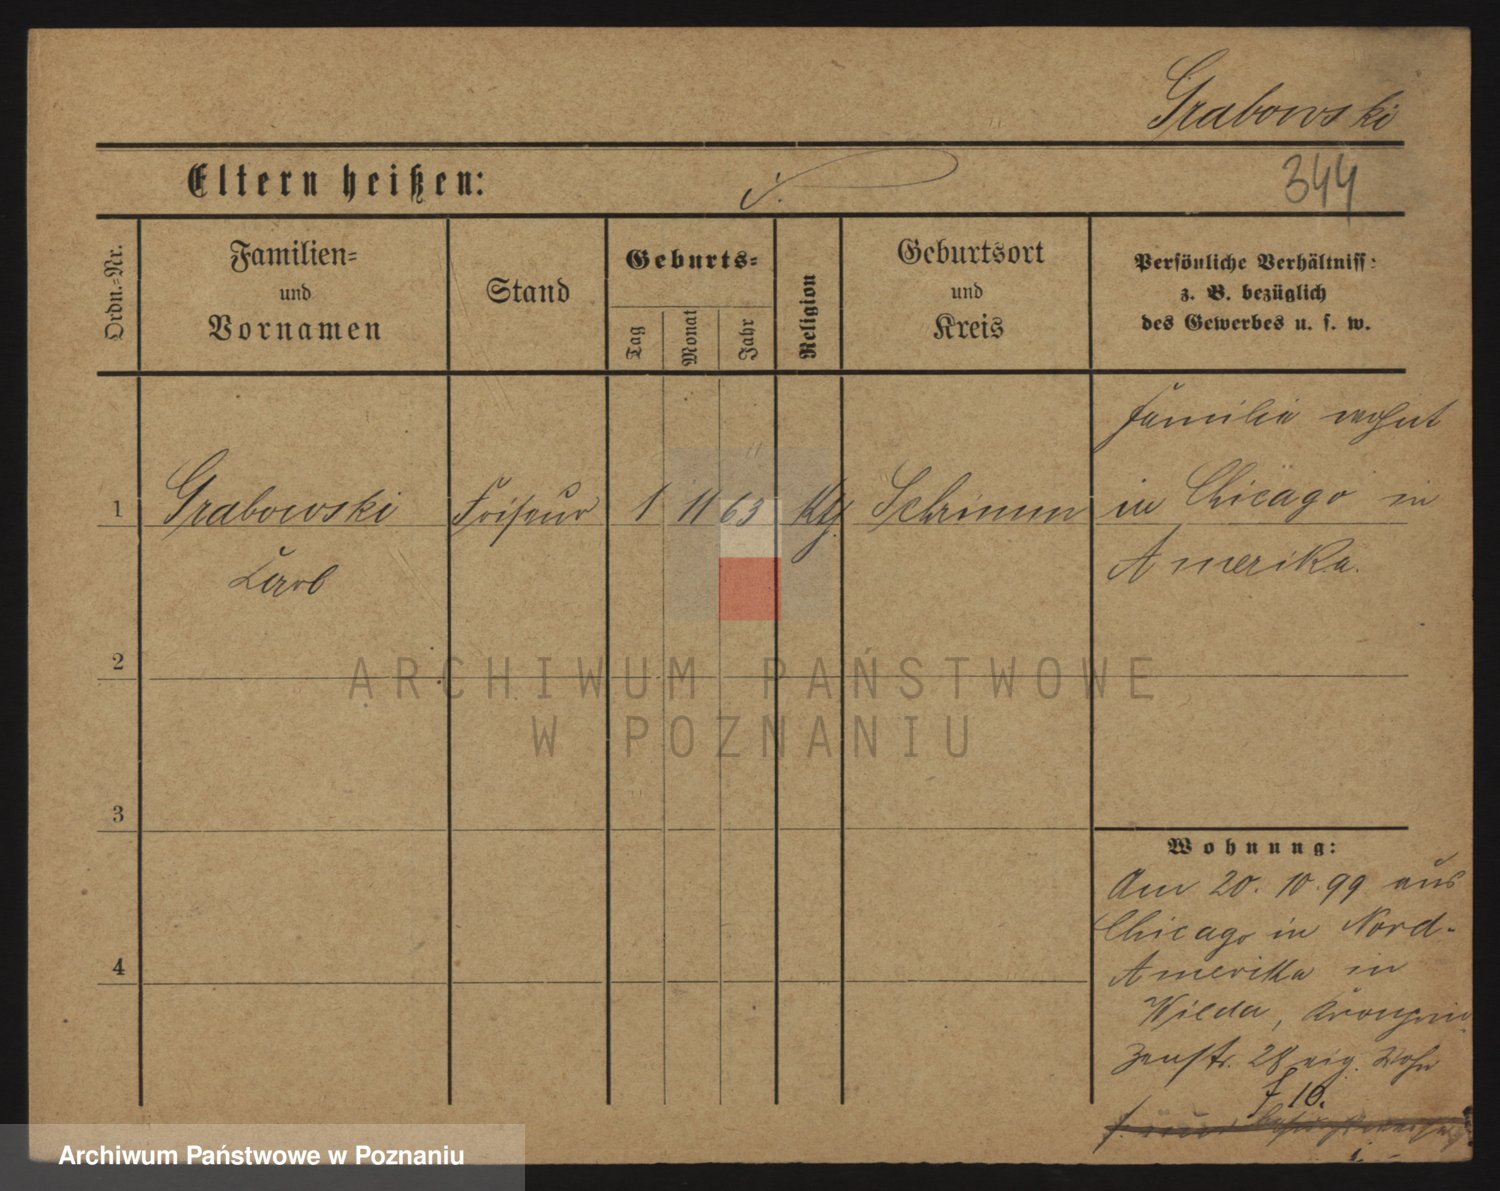 Grabowski
Eltern heißen:
344
Ordn.-Nr.
Familien-
und
Vornamen
Stand
Geburts-
Tag
Monat
Jahr
Religion
Geburtsort
und
Kreis
Persönliche Verhältniss:
z. B. bezüglich
des Gewerbes u. s. w.
Familie wohnt
1 Grabowski Friseur 1 11 63 kth. Schrimm in Chicago in
Amerika.
2
3
4
Wohnung:
Am 20. 10. 99 aus
Chicago in Nord-
Amerika in
Wilda, Kronprin
zenstr. 28 eig. Wohn
f 10.
ARCHIWUM PAŃSTWOWE
W POZNANIU
Archiwum Państwowe w Poznaniu